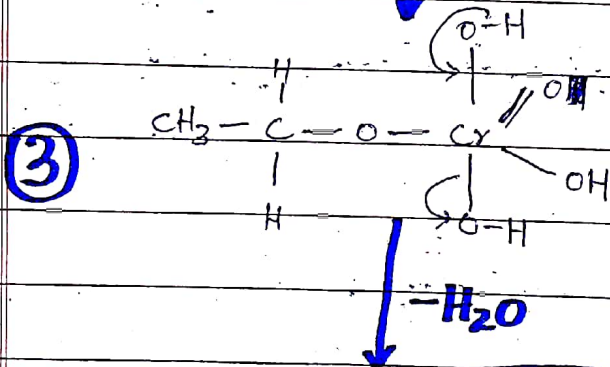 O-H
H
CH3 - C - O - Cr = O
OH
H
O-H
3
-H2O